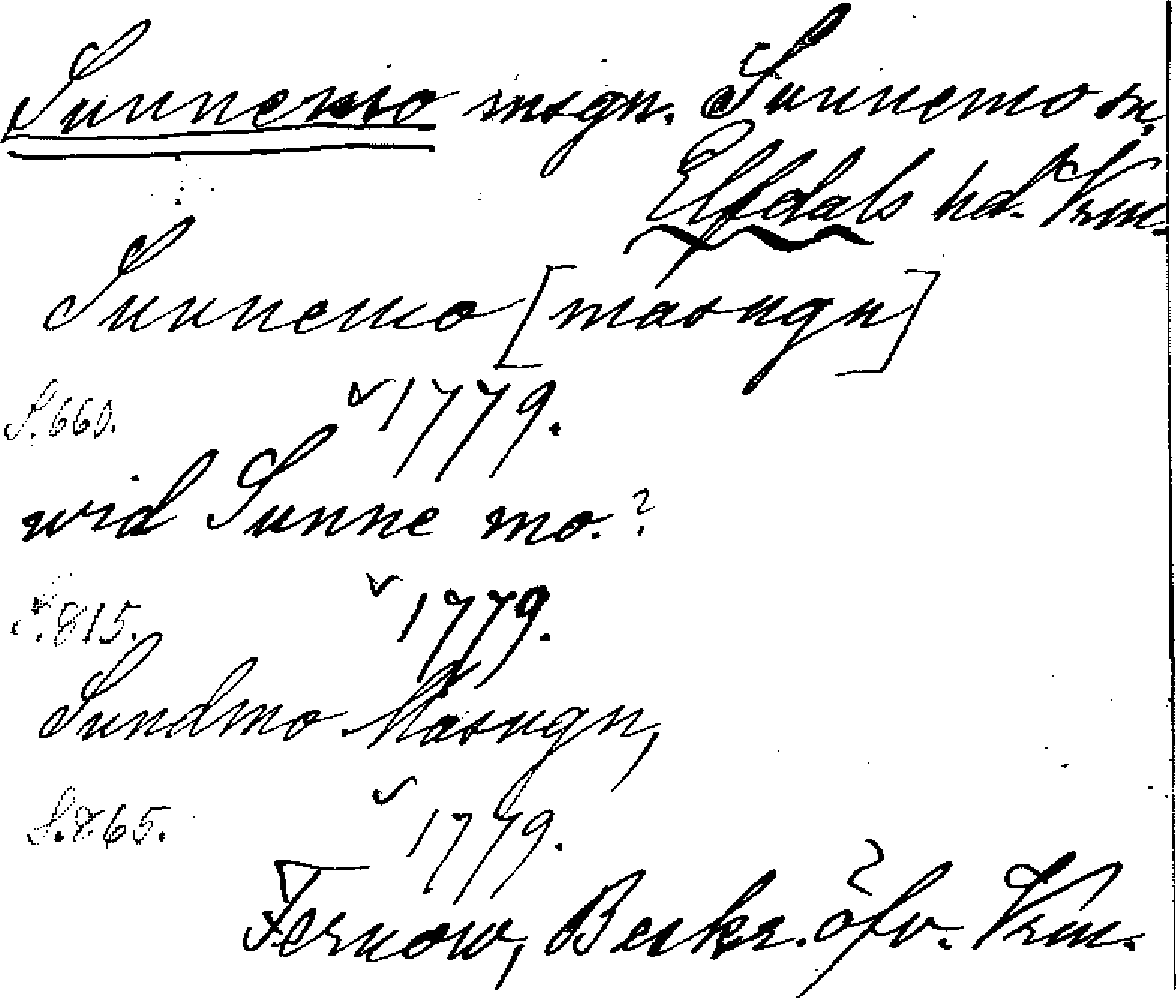 Sunnemo msgn. Sunnemo sn.
Elfdals hd. Vrm.
Sunnemo [masugn]
S. 660. 1779.
wid Sunne mo.?
S. 815. 1779.
Sundmo Masugn,
S. 865. 1779.
Fernow, Beskr. öfv. Vrm.